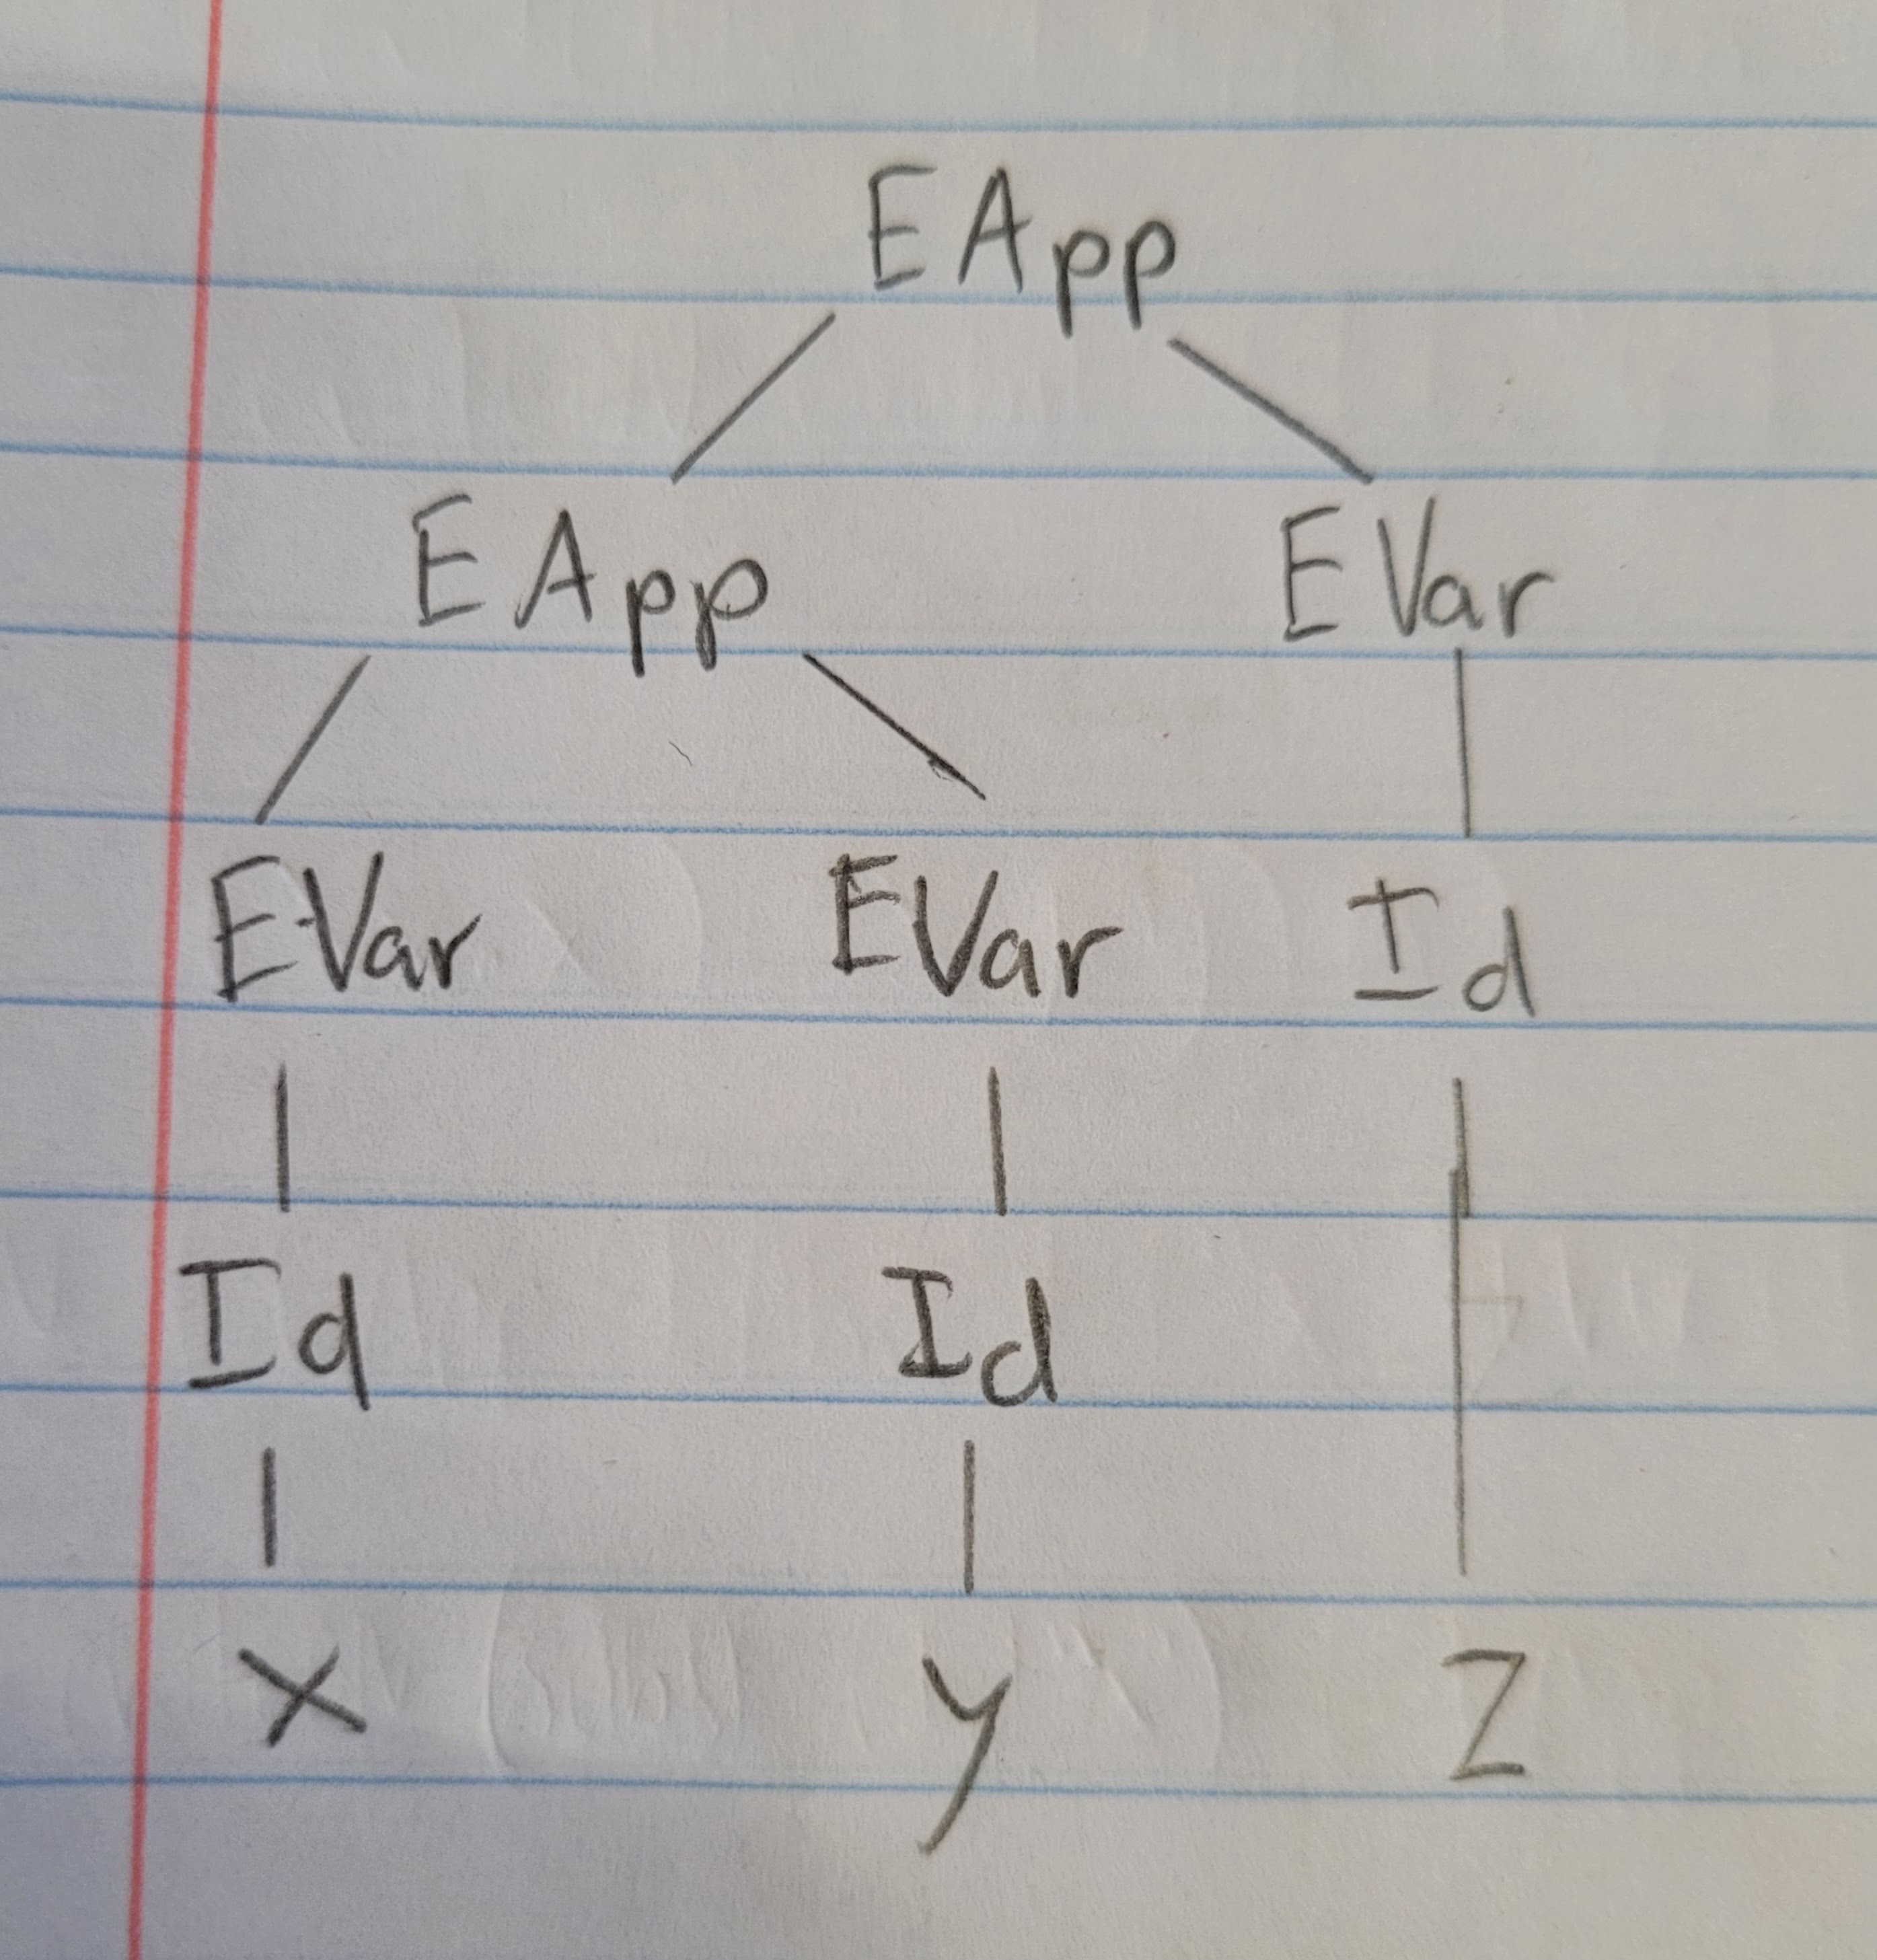 EApp
EApp EVar
EVar EVar Id
Id Id
x y z